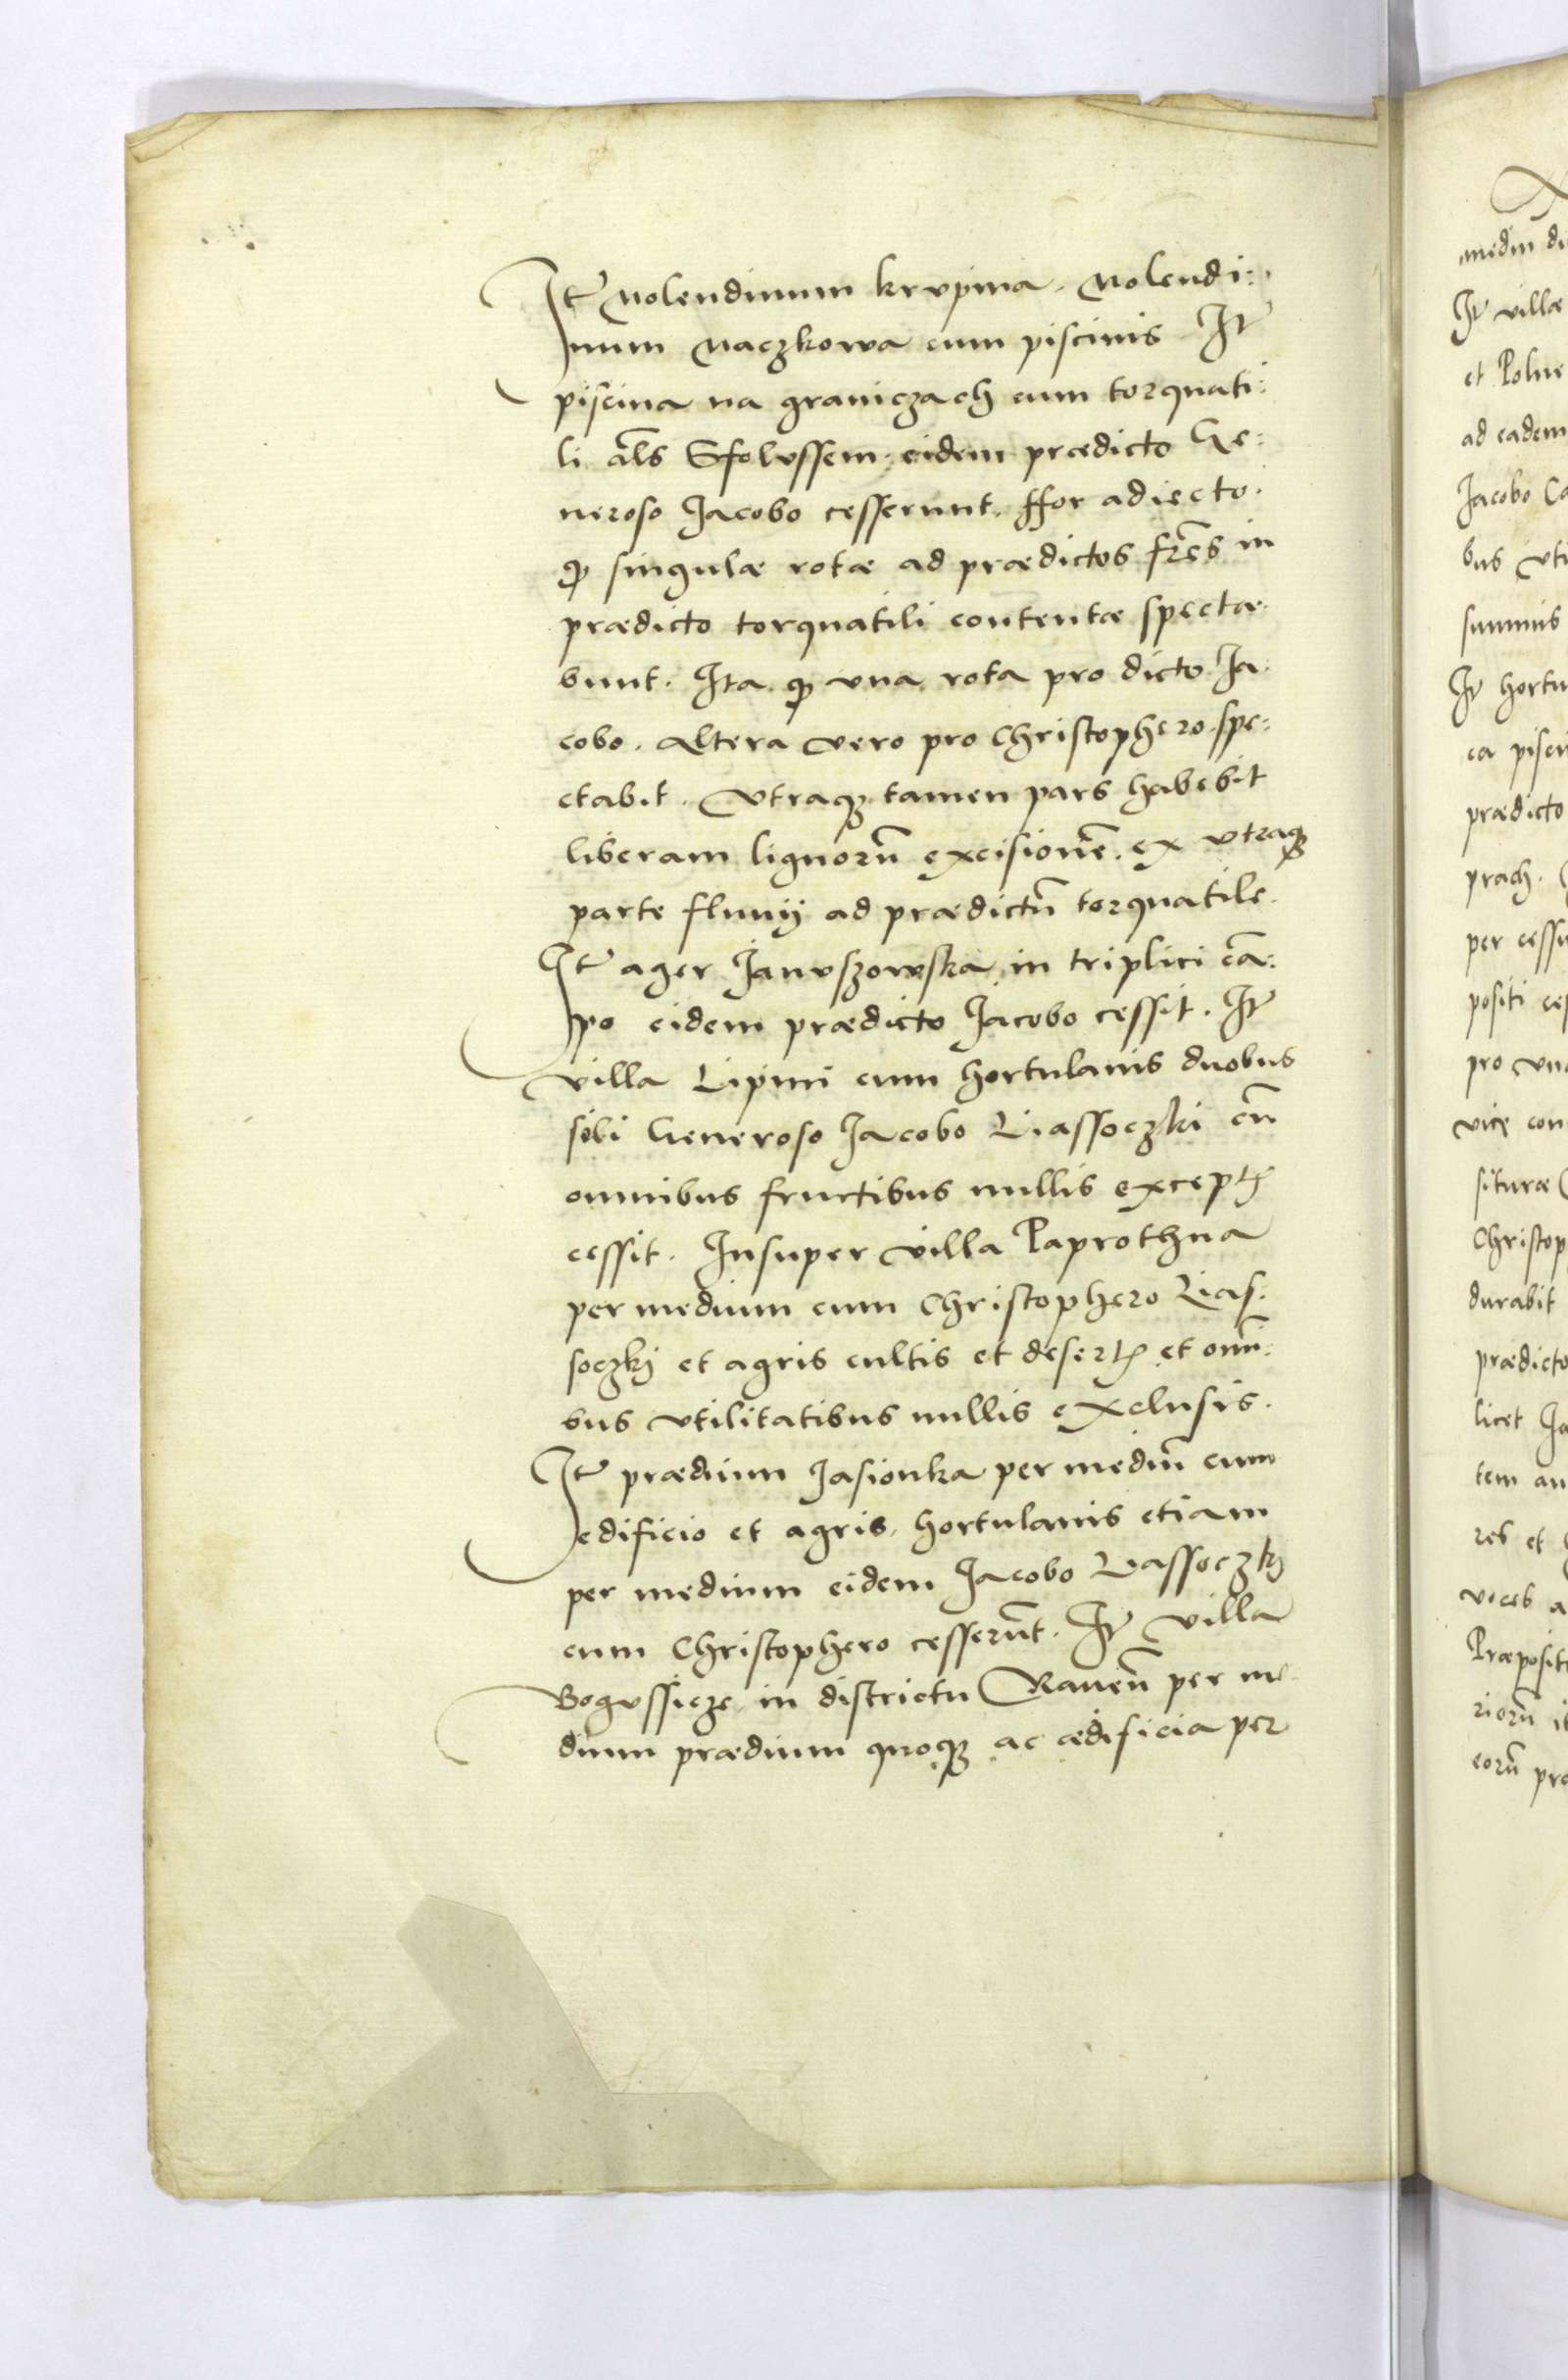 It molendinum krvpina. Molendi:
num Maczkowa cum piscinis It
piscina na graniczach cum torquati:
li als Sfolvssem eidem prædicto Ge:
neroso Jacobo cesserunt. Hoc adiecto.
qp singulæ rotæ ad prædictos fres in
prædicto torquatili contentæ spectæ
bunt. Ita qp vna rota pro dicto Ja
cobo. altera vero pro Christophero spe:
ctabit. Vtraqz tamen pars habebit
liberam lignorū excisionē. ex vtraqz
parte fluuij ad prædictū torquatile.
It ager Janvszowska in triplici cā:
po eidem prædicto Jacobo cessit. It
villa Lipini cum hortulanis duobus
sibi Generoso Jacobo Liassoczki cū
omnibus fructibus nullis except
cessit. Insuper villa Paprothna
per medium cum Christophero Lias.
soczkj et agris cultis et desert et omī:
bus vtilitatibus nullis exclusis.
It prædium Jasionka per mediū cum
edificio et agris. hortulanis etiam
per medium eidem Jacobo Lassoczkj
cum Christophero cesserūt. It villa
Bogvssicze in districtu Raueñ per me
dium prædium quoqz ac ædificia per
mediu
It villæ
et Polue
ad eadem
Jacobo
bus
summis
It hortu
ca pisci
prædicto
prach.
per cessi
positi
pro vna
vice con
situræ
Christop
durabit
prædicto
licet Ja
tem au
res et
voces a
Præposit
riorū
eorū pro